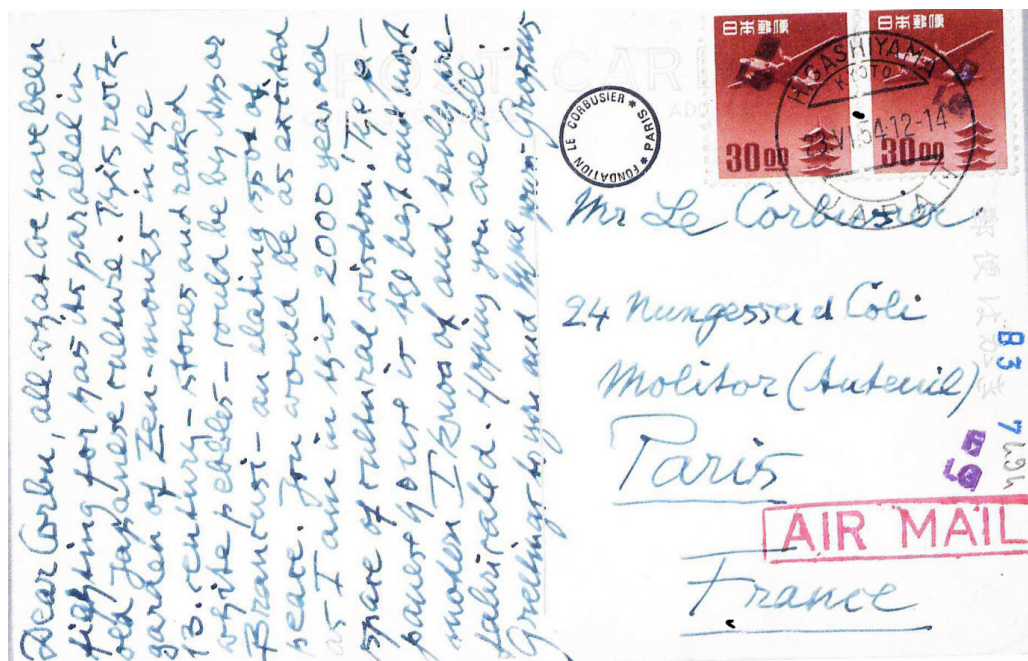 Dear Corbu, all what we have been
fighting for has its parallel in
old Japanese culture. This rock-
garden of Zen-monks in the
13. century - stones and raked
white pebbles - could be by Arp or
Brancusi - an elating spot of
peace. You would be as excited
as I am in this 2000 year old
space of cultural wisdom! The Ja-
panese house is the best and most
modern I know of and truly pre-
fabricated. Hoping you are well
Greetings to you and Mme your Gropius
POST CARD
FONDATION LE CORBUSIER * PARIS *
日本郵便
30 00
日本郵便
30 00
HIGASHIYAMA
KYOTO
VI.54.12-14
JAPAN
Mr Le Corbusier.
24 Nungesser et Coli
Molitor (Auteuil)
Paris
AIR MAIL
France
B3
7